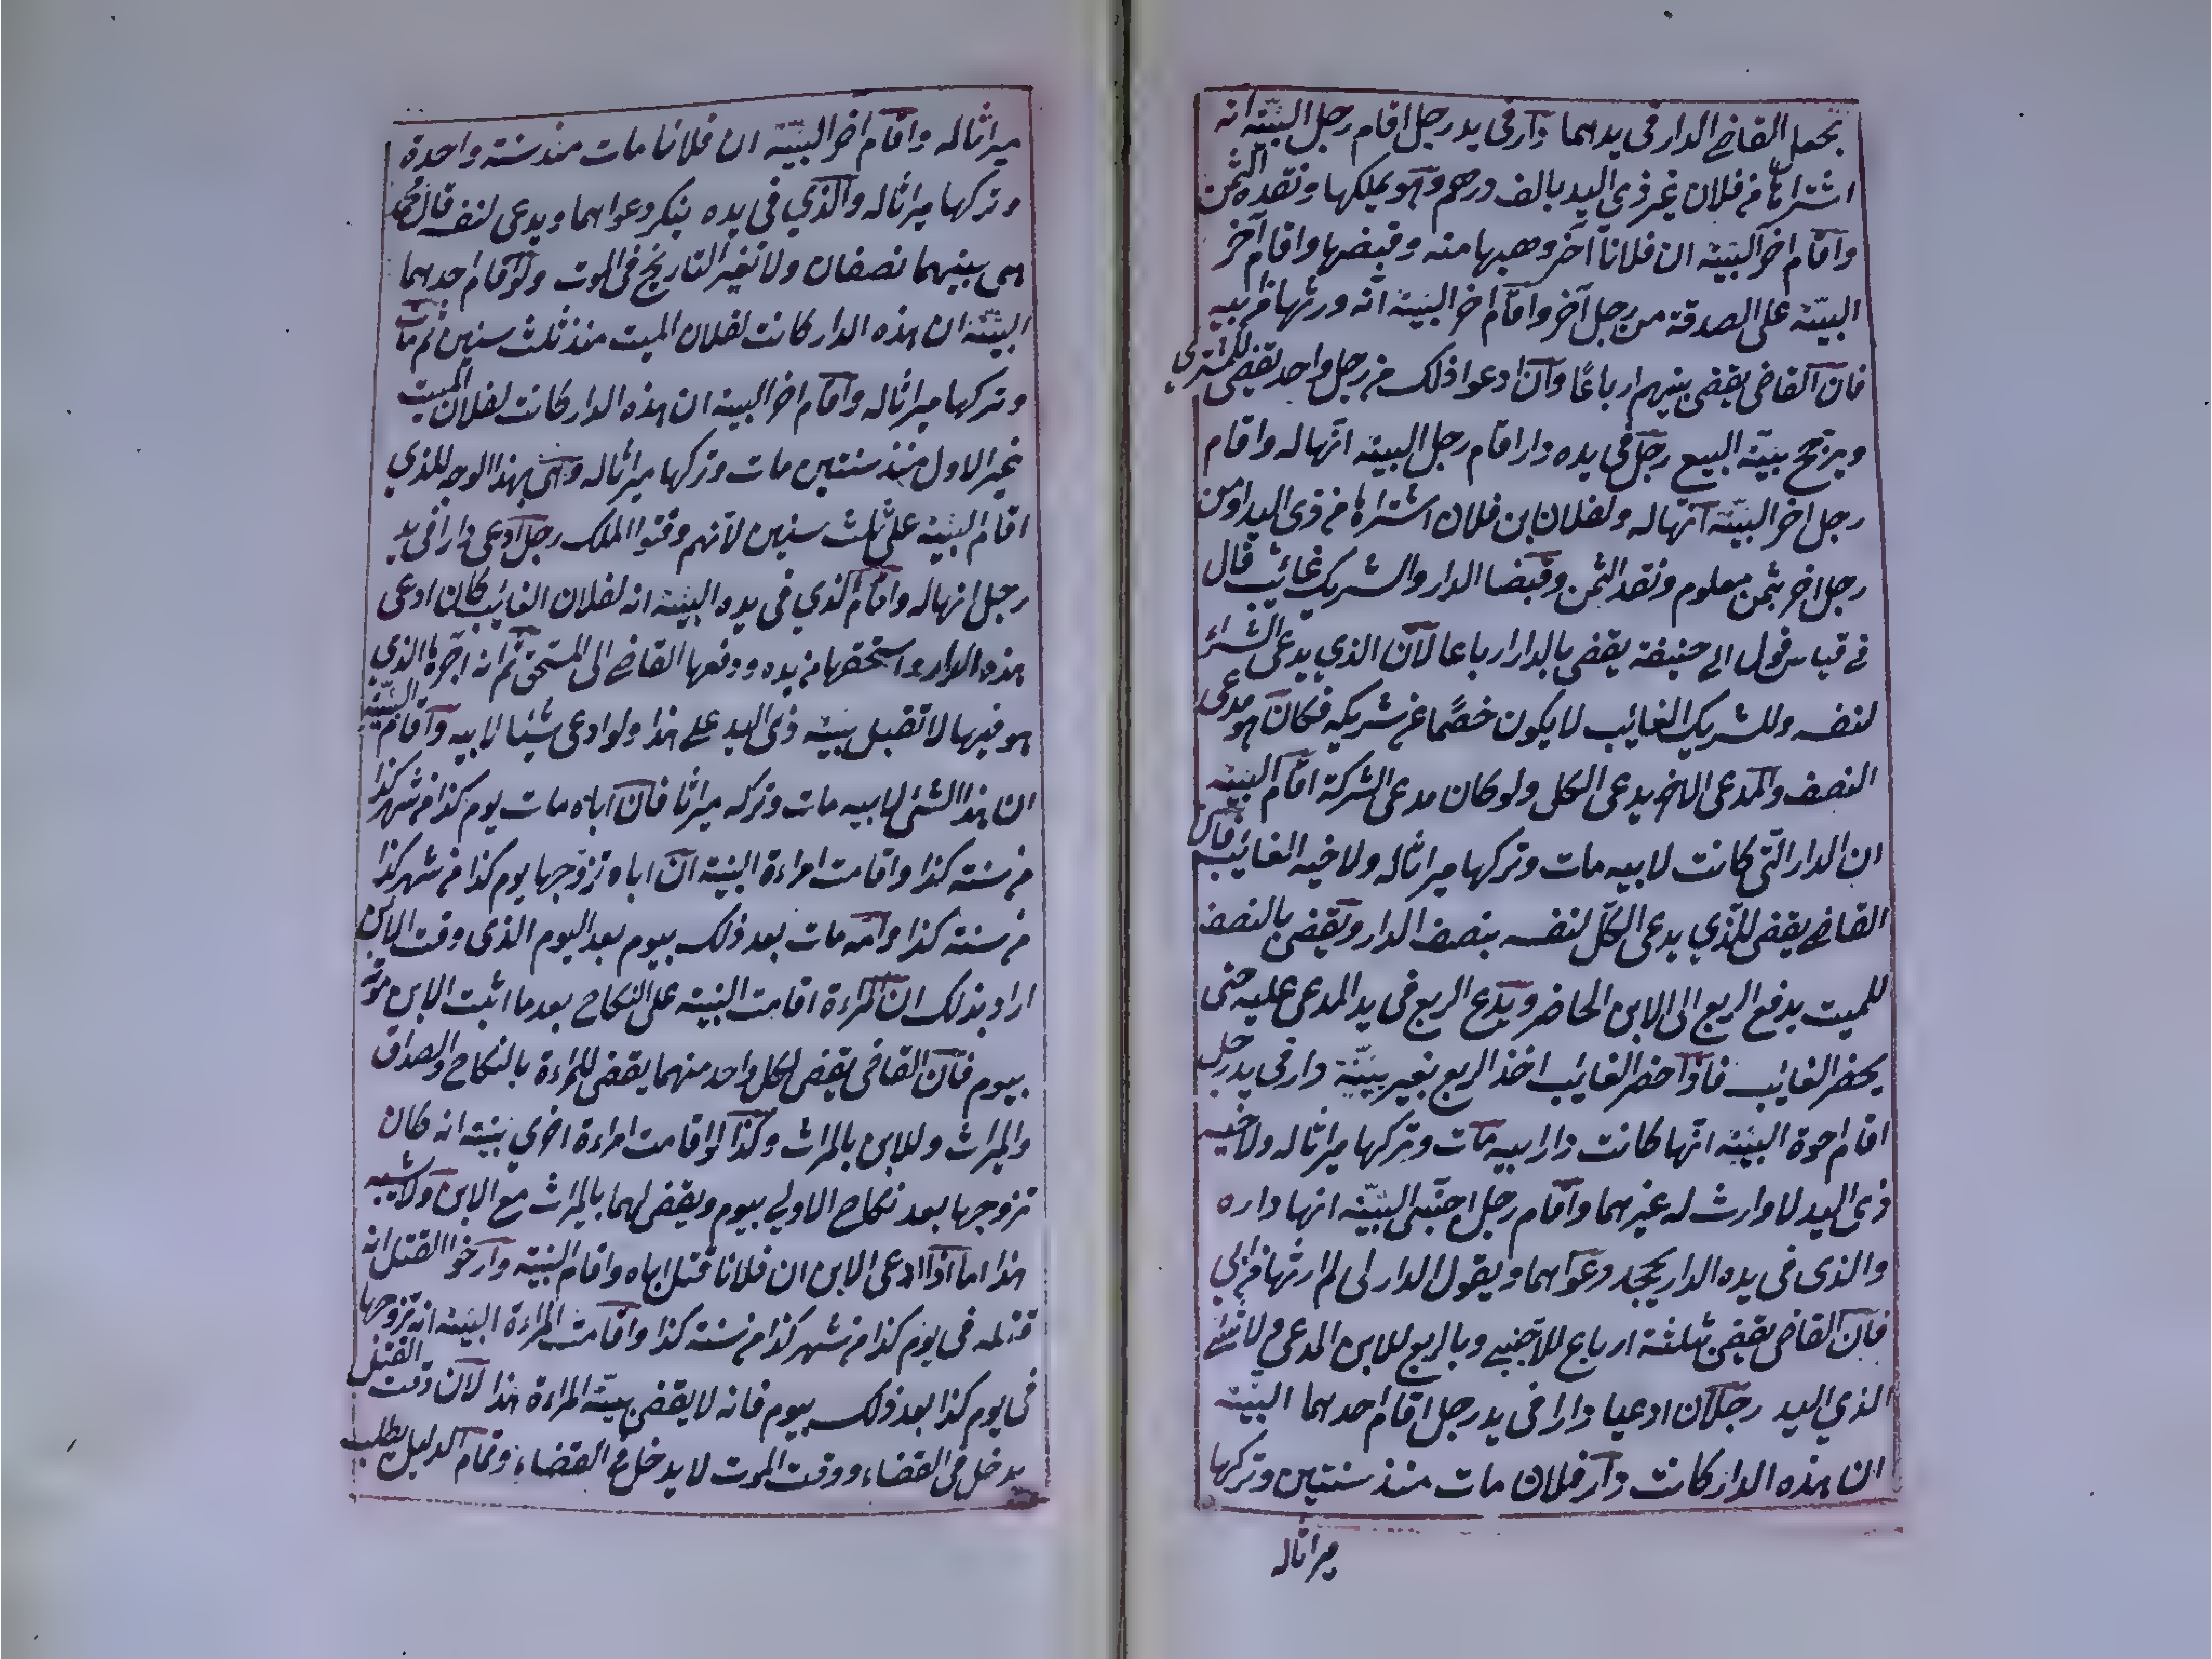 يجعل القاضي الدار في يدهما دار في يد رجل اقام رجل البينة انه
اشتراها من فلان غير ذي اليد بالف درهم وهو يملكها ونقده الثمن
واقام اخر البينة ان فلانا آخر وهبها منه وقبضها واقام آخر
البينة على الصدقة من رجل آخر واقام اخر البينة انه ورثها من ابيه
فان القاضي يقضي بينهم ارباعًا وان ادعوا ذلك من رجل واحد يقضي للمشتري
ويرجح بينة البيع رجل في يده دار اقام رجل البينة انها له واقام
رجل اخر البينة انها له ولفلان ابن فلان اشتراها من ذي اليد او من
رجل اخر بثمن معلوم ونقد الثمن وقبضا الدار والشريك غائب قال
في قياس قول ابي حنيفة يقضي بالدار ارباعا لان الذي يدعي الشراء
لنفسه وللشريك الغائب لا يكون خصمًا عن شريكه فكان هو مدعي
النصف والمدعي الاخر يدعي الكل ولو كان مدعي الشركة اقام البينة
ان الدار التي كانت لابيه مات وتركها ميراثا له ولاخيه الغائب فان
القاضي يقضي للذي يدعي الكل لنفسه بنصف الدار ويقضي بالنصف
للميت يدفع الربع الى الابن الحاضر ويدع الربع في يد المدعى عليه حتى
يحضر الغائب فاذا حضر الغائب اخذ الربع بغير بينة دار في يد رجل
اقام اخوه البينة انها كانت دار ابيه مات وتركها ميراثا له ولاخيه
ذي اليد لا وارث له غيرهما واقام رجل اجنبي البينة انها داره
والذي في يده الدار يجحد دعواهما ويقول الدار لي لم ارثها من ابي
فان القاضي يقضي بثلثة ارباع للاجنبي وبالربع للابن المدعي ولا شئ
الذي اليد رجلان ادعيا دارا في يد رجل اقام احدهما البينة
ان هذه الدار كانت دار فلان مات منذ سنتين وتركها
ميراثا له
ميراثا له واقام اخر البينة ان فلانا مات منذ سنة واحدة
وتركها ميراثا له والذي في يده ينكر دعواهما ويدعي لنفسه قال محمد
هي بينهما نصفان ولا تغير التاريخ في الموت ولو اقام احدهما
البينة ان هذه الدار كانت لفلان الميت منذ ثلث سنين ثم مات
وتركها ميراثا له واقام اخر البينة ان هذه الدار كانت لفلان الميت
غير الاول منذ سنتين مات وتركها ميراثا له وهي بهذا الوجه للذي
اقام البينة على ثلث سنين لانهم وقتوا الملك رجل ادعى دارا في يد
رجل انها له واقام الذي في يده البينة انه لفلان الغائب كان ادعى
هذه الدار واستحقها من يده ودفعها القاضي الى المستحق ثم انه اجره الذي
هو فيها لا تقبل بينة ذي اليد على هذا ولو ادعى شيئا لابيه واقام البينة
ان هذا الشئ لابيه مات وتركه ميراثا فان اباه مات يوم كذا من شهر كذا
من سنة كذا واقامت امراءة البينة ان اباه تزوجها يوم كذا من شهر كذا
من سنة كذا وانه مات بعد ذلك بيوم بعد اليوم الذي وقت الابن
اراد بذلك ان المراءة اقامت البينة على النكاح بعد ما اثبت الابن موته
بيوم فان القاضي يقضي لكل واحد منهما يقضي للمراءة بالنكاح والصداق
والميراث وللابن بالميراث وكذا لو اقامت امراءة اخرى بينة انه كان
تزوجها بعد نكاح الاولي بيوم ويقضي لهما بالميراث مع الابن ولا يشبه
هذا اما اذا ادعى الابن ان فلانا قتل اباه واقام البينة وارخوا القتل انه
قتله في يوم كذا من شهر كذا من سنة كذا واقامت المراءة البينة انه تزوجها
في يوم كذا بعد ذلك بيوم فانه لا يقضي ببينة المراءة هذا لان وقت القتل
يدخل في القضاء ووقت الموت لا يدخل في القضاء وتمام الدليل يطلب